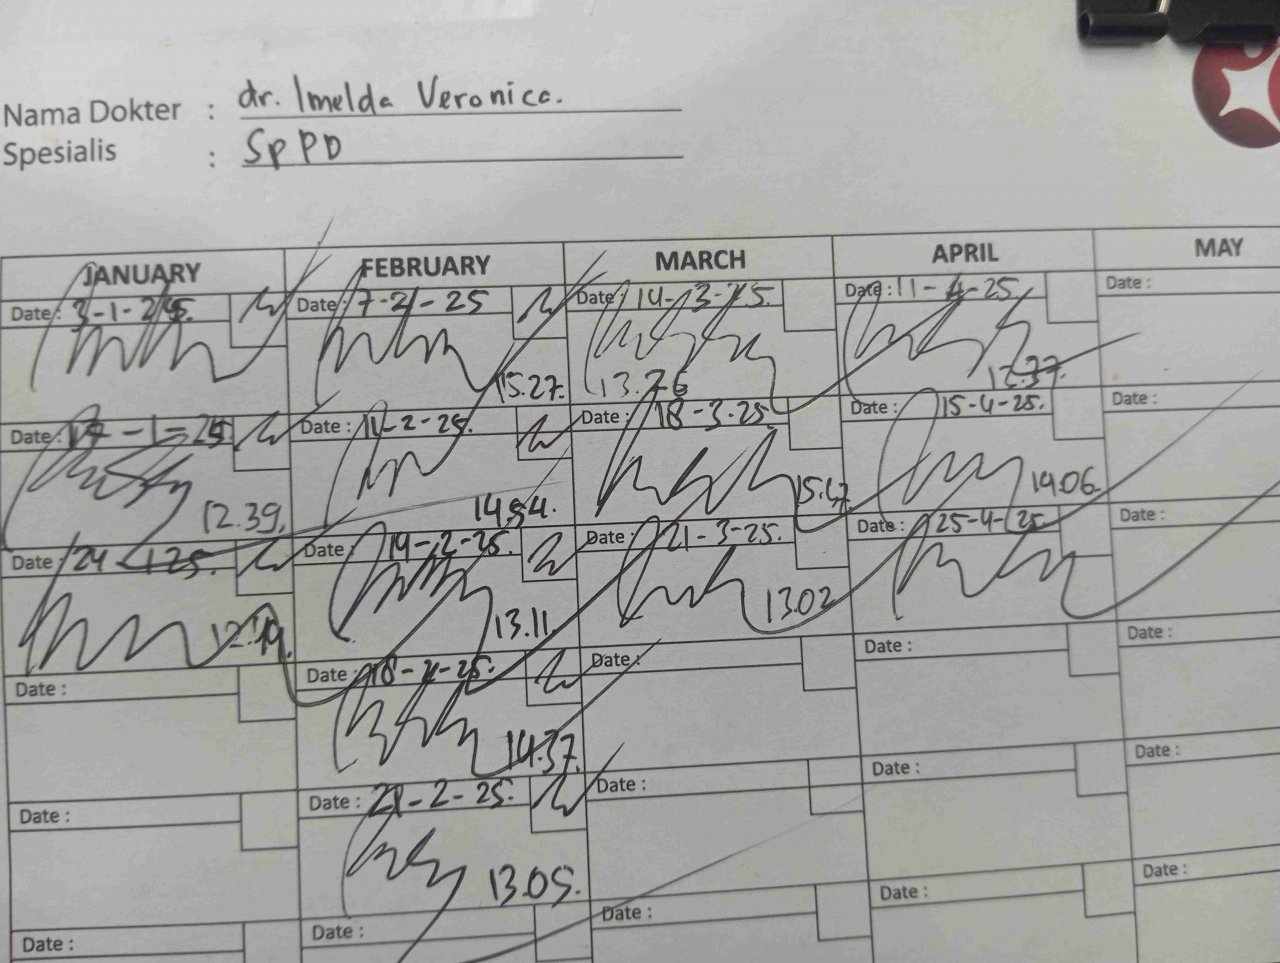 Nama Dokter : dr. Imelda Veronica.
Spesialis : SpPD
JANUARY FEBRUARY MARCH APRIL MAY
Date : 3-1-25. Date : 7-2-25 Date : 14-3-25. Date : 11-4-25. Date :
15.27. 13.26 12.37.
Date : 17-1-25 Date : 11-2-25. Date : 18-3-25. Date : 15-4-25. Date :
12.39. 14.54. 15.47 14.06.
Date : 24-1-25. Date : 14-2-25. Date : 21-3-25. Date : 25-4-25 Date :
13.11. 13.02
Date : Date : 18-2-25. Date : Date : Date :
14.37.
Date : Date : 21-2-25. Date : Date : Date :
13.05.
Date : Date : Date : Date : Date :